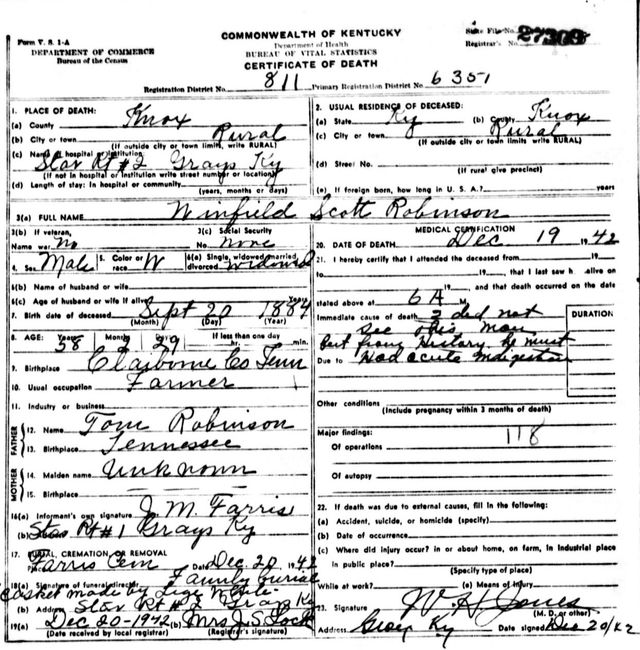 Form V. S. 1-A
DEPARTMENT OF COMMERCE
Bureau of the Census
COMMONWEALTH OF KENTUCKY
Department of Health
BUREAU OF VITAL STATISTICS
CERTIFICATE OF DEATH
State File No. 27309
Registrar's No.
Registration District No. 811 Primary Registration District No. 6351
1. PLACE OF DEATH:
(a) County Knox
(b) City or town Rural
(If outside city or town limits, write RURAL)
(c) Name hospital or institution
Star Rt #2 Grays Ky
(If not in hospital or institution write street number or location)
(d) Length of stay: In hospital or community
(years, months or days)
2. USUAL RESIDENCE OF DECEASED:
(a) State Ky (b) County Knox
(c) City or town Rural
(If outside city or town limits, write RURAL)
(d) Street No.
(If rural give precinct)
(e) If foreign born, how long in U. S. A.? years
3(a) FULL NAME Winfield Scott Robinson
3(b) If veteran, Name war no
3(c) Social Security No. none
4. Sex Male 5. Color or race W 6(a) Single, widowed, married, divorced widowed
6(b) Name of husband or wife
6(c) Age of husband or wife if alive years
7. Birth date of deceased Sept 20 1884
(Month) (Day) (Year)
8. AGE: Years 58 Months 2 Days 29 If less than one day hr. min.
9. Birthplace Claiborne Co Tenn
10. Usual occupation Farmer
11. Industry or business
FATHER
12. Name Tom Robinson
13. Birthplace Tennessee
MOTHER
14. Maiden name Unknown
15. Birthplace
16(a) Informant's own signature J. M. Farris
(b) Star Rt #1 Grays Ky
17. BURIAL, CREMATION OR REMOVAL
Farris Cem Date Dec. 20 1942
18(a) Signature of funeral director Family burial
Casket made by
(b) Address Star Rt #2 Grays Ky
19(a) Dec 20-1942 (b) Mrs J. S. Lock
(Date received by local registrar) (Registrar's signature)
MEDICAL CERTIFICATION
20. DATE OF DEATH Dec 19 1942
21. I hereby certify that I attended the deceased from 19
to 19, that I last saw h alive on
19, and that death occurred on the date
stated above at 6 A M
Immediate cause of death I did not
see this man
But from History he must
Due to Had acute indigestion
DURATION
Other conditions
(Include pregnancy within 3 months of death)
Major findings: 118
Of operations
Of autopsy
22. If death was due to external causes, fill in the following:
(a) Accident, suicide, or homicide (specify)
(b) Date of occurrence
(c) Where did injury occur? in or about home, on farm, in industrial place
in public place?
(Specify type of place)
While at work? (e) Means of injury
23. Signature W. H. Jones
(M. D. or other)
Address Ky Date signed Dec 20/42